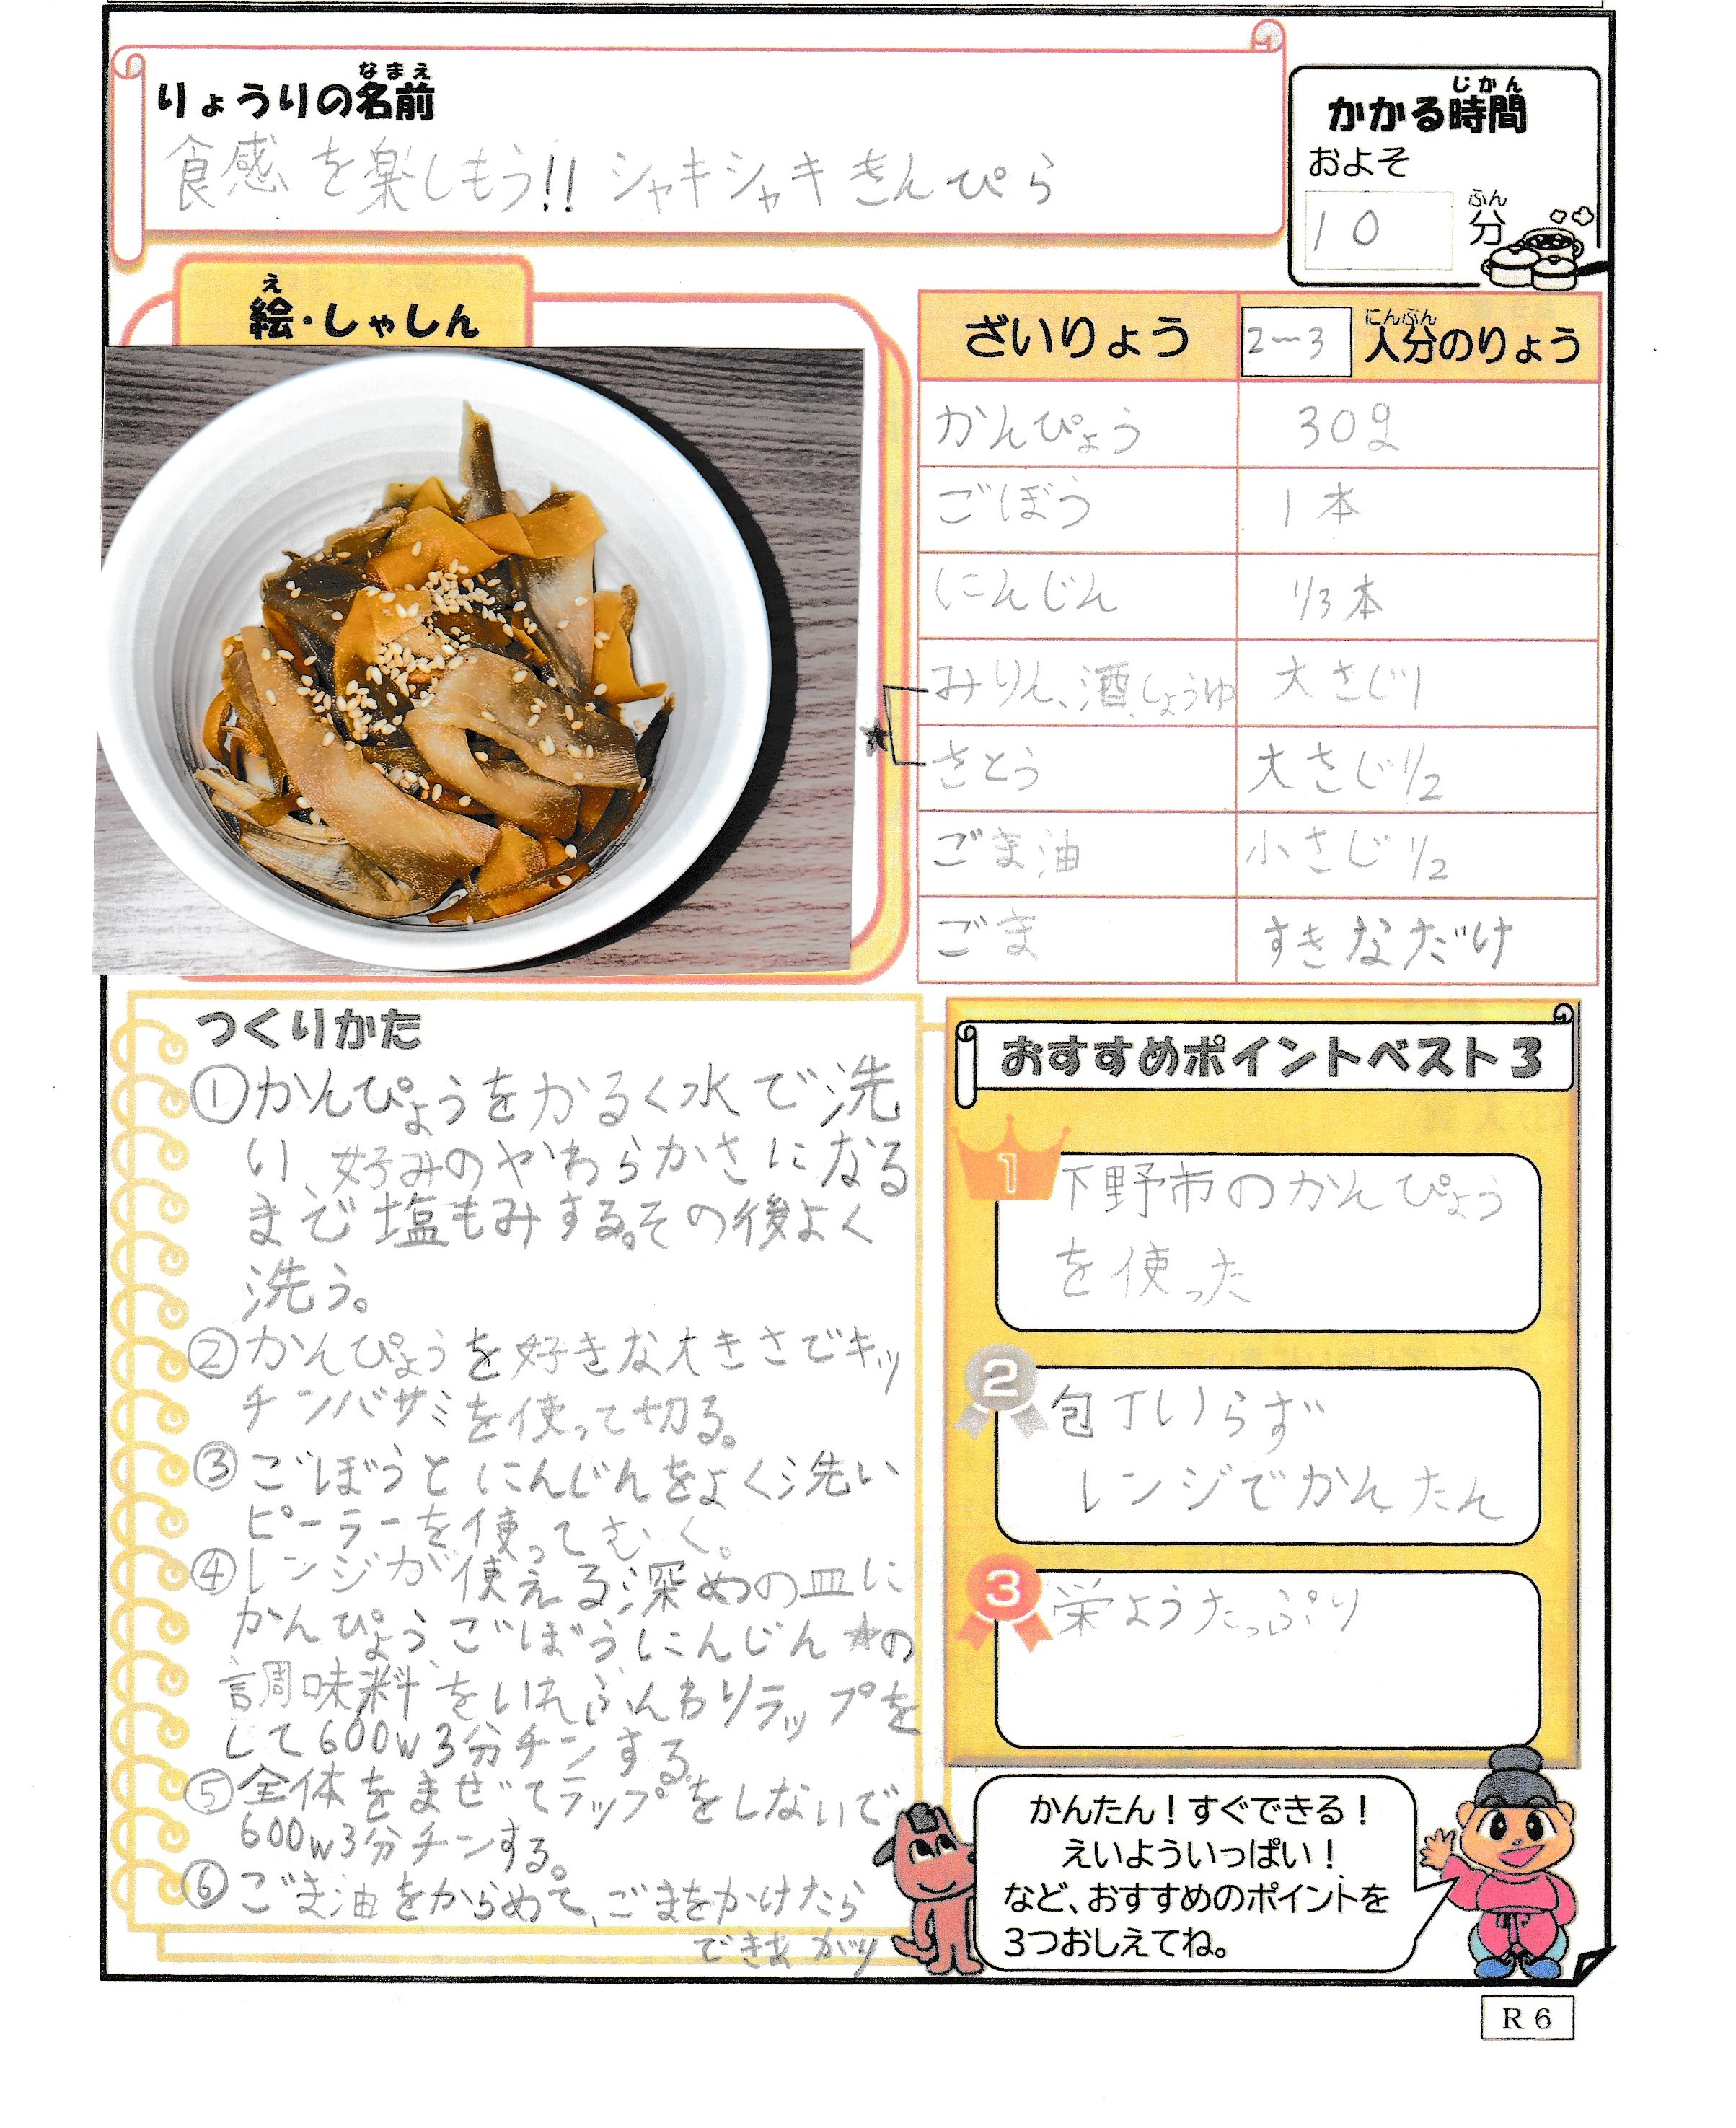 りょうりの名前
なまえ
食感を楽しもう!! シャキシャキきんぴら
かかる時間
じかん
およそ
10分
ふん
絵・しゃしん
え
ざいりょう 2〜3人分のりょう
にんぶん
かんぴょう 30g
ごぼう 1本
にんじん 1/3本
みりん、酒、しょうゆ 大さじ1
★
さとう 大さじ1/2
ごま油 小さじ1/2
ごま すきなだけ
つくりかた
①かんぴょうをかるく水で洗
い、好みのやわらかさになる
まで塩もみする。その後よく
洗う。
②かんぴょうを好きな大きさでキッ
チンバサミを使って切る。
③ごぼうとにんじんをよく洗い
ピーラーを使ってむく。
④レンジが使える深めの皿に
かんぴょう、ごぼう、にんじん★の
調味料をいれふんわりラップを
して600w3分チンする。
⑤全体をまぜてラップをしないで
600w3分チンする。
⑥ごま油をからめて、ごまをかけたら
できあがり
おすすめポイントベスト3
1
下野市のかんぴょう
を使った
2
包丁いらず
レンジでかんたん
3
栄ようたっぷり
かんたん！すぐできる！
えいよういっぱい！
など、おすすめのポイントを
3つおしえてね。
R6